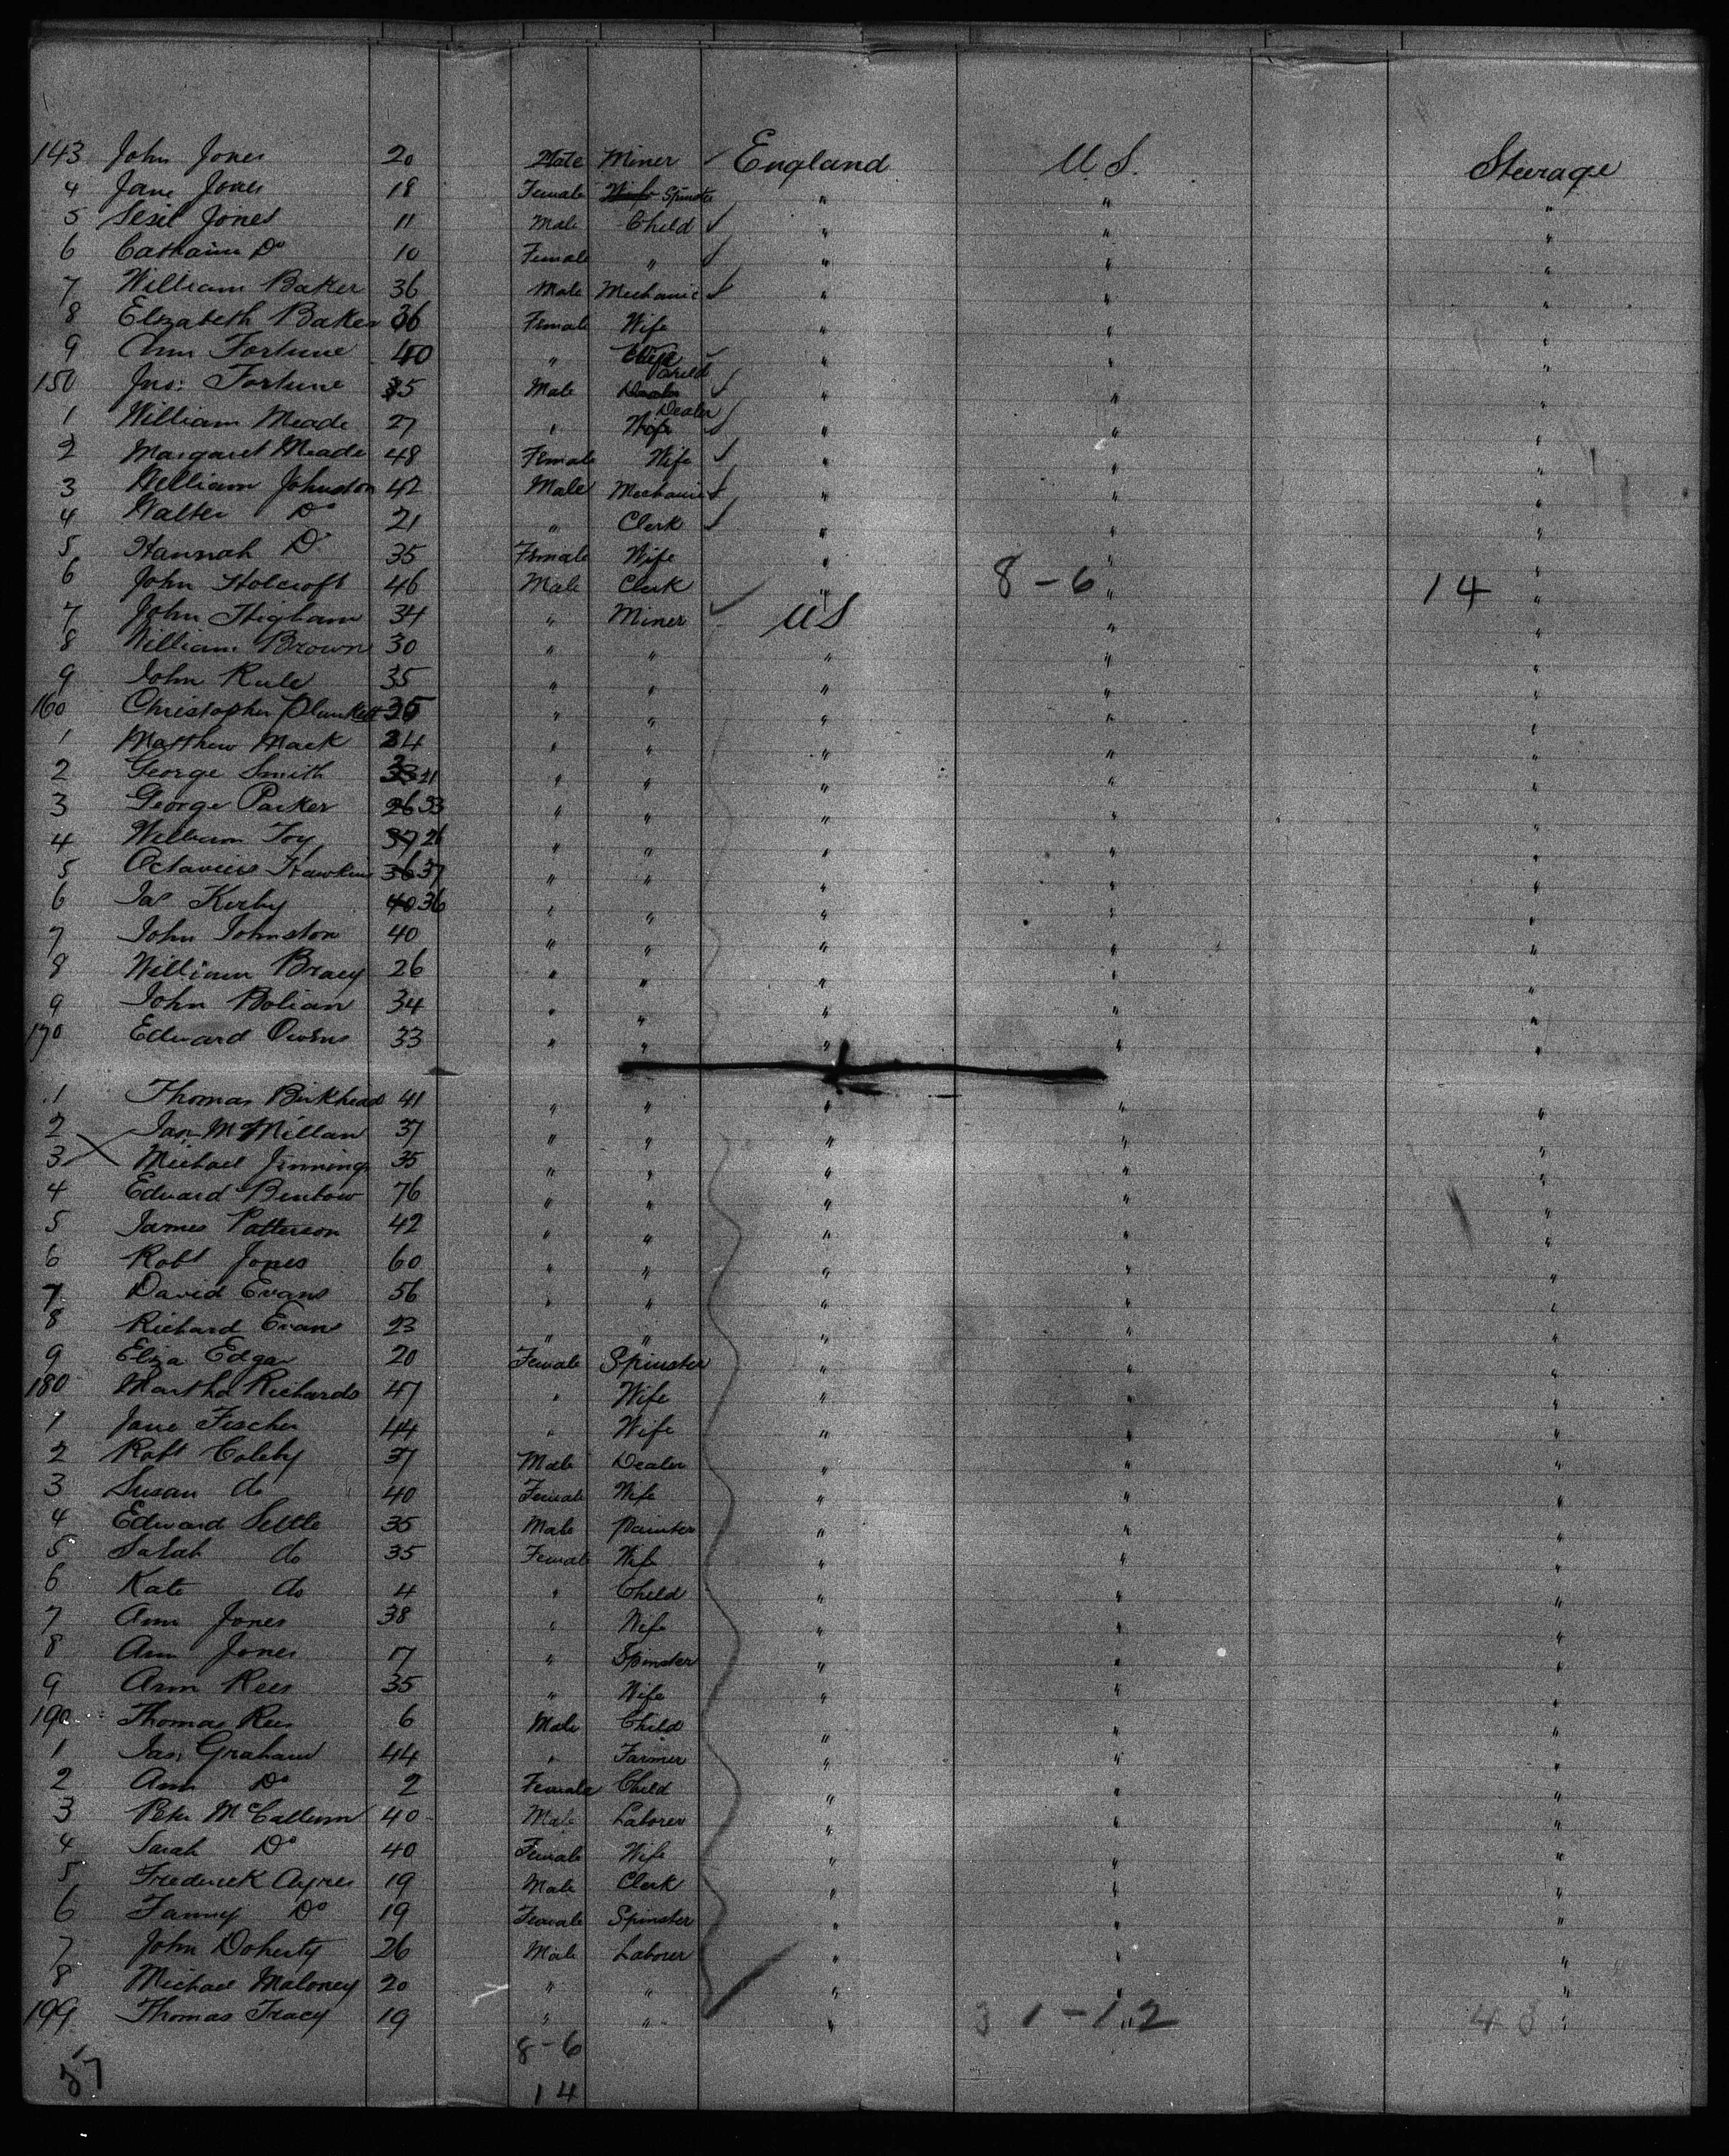 143 John Jones 20 Male Miner ✓ England U S. Steerage
4 Jane Jones 18 Female Wife Spinster " " "
5 Sesil Jones 11 Male Child ✓ " " "
6 Catharine Do 10 Female " ✓ " " "
7 William Baker 36 Male Mechanic ✓ " " "
8 Elizabeth Baker 36 Female Wife " " "
9 Ann Fortune 40 " Wife " " "
150 Jno: Fortune 5 Male Dealer Child ✓ " " "
1 William Meade 27 " Wife Dealer ✓ " " "
2 Margaret Meade 48 Female Wife ✓ " " "
3 William Johnston 42 Male Mechanic ✓ " " "
4 Walter Do 21 " Clerk ✓ " " "
5 Hannah Do 35 Female Wife " " "
6 John Holcroft 46 Male Clerk " 8-6 " 14 "
7 John Higham 34 " Miner ✓ U S " "
8 William Brown 30 " " " " "
9 John Rule 35 " " " " "
160 Christopher Plunkett 35 " " " " "
1 Matthew Mack 34 " " " " "
2 George Smith 33 21 " " " " "
3 George Parker 26 33 " " " " "
4 William Foy 37 26 " " " " "
5 Octavius Hawkins 36 37 " " " " "
6 Jas Kirby 40 36 " " " " "
7 John Johnston 40 " " " " "
8 William Bracy 26 " " " " "
9 John Bolian 34 " " " " "
170 Edward Owens 33 " " " " "
1 Thomas Birkhead 41 " " " " "
2 Jas McMillan 37 " " " " "
3 Michael Jennings 35 " " " " "
4 Edward Bentow 76 " " " " "
5 James Patterson 42 " " " " "
6 Robt Jones 60 " " " " "
7 David Evans 56 " " " " "
8 Richard Evans 23 " " " " "
9 Eliza Edgar 20 Female Spinster " " "
180 Martha Richards 47 " Wife " " "
1 Jane Fischer 44 " Wife " " "
2 Robt Coleby 37 Male Dealer " " "
3 Susan do 40 Female Wife " " "
4 Edward Settle 35 Male Painter " " "
5 Sarah do 35 Female Wife " " "
6 Kate do 4 " Child " " "
7 Ann Jones 38 " Wife " " "
8 Ann Jones 17 " Spinster " " "
9 Ann Rees 35 " Wife " " "
190 Thomas Rees 6 Male Child " " "
1 Jas. Graham 44 " Farmer " " "
2 Ann Do 2 Female Child " " "
3 Peter McCallum 40 Male Laborer " " "
4 Sarah Do 40 Female Wife " " "
5 Frederick Ayres 19 Male Clerk " " "
6 Fanny Do 19 Female Spinster " " "
7 John Doherty 26 Male Laborer " " "
8 Michael Maloney 20 " " " " "
199 Thomas Tracy 19 " " " 31-12 " 43 "
8-6
57 14